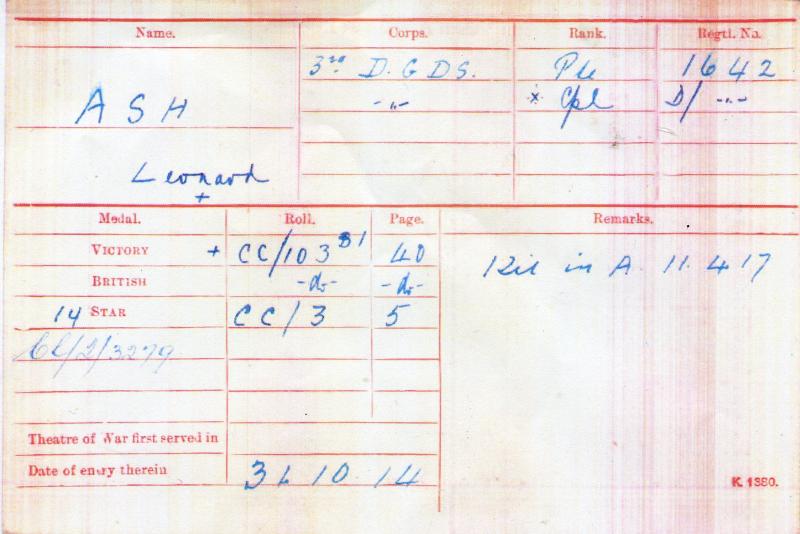 Name. Corps. Rank. Regtl. No.
3rd D. G DS. Pte 1642
ASH -"- x Cpl D/ -"-
Leonard
+
Medal. Roll. Page. Remarks.
VICTORY + CC/103 B1 40 Kil in A 11.4.17
BRITISH -do- -do-
14 STAR CC/3 5
/2/3279
Theatre of War first served in
Date of entry therein 31 10 14
K. 1380.